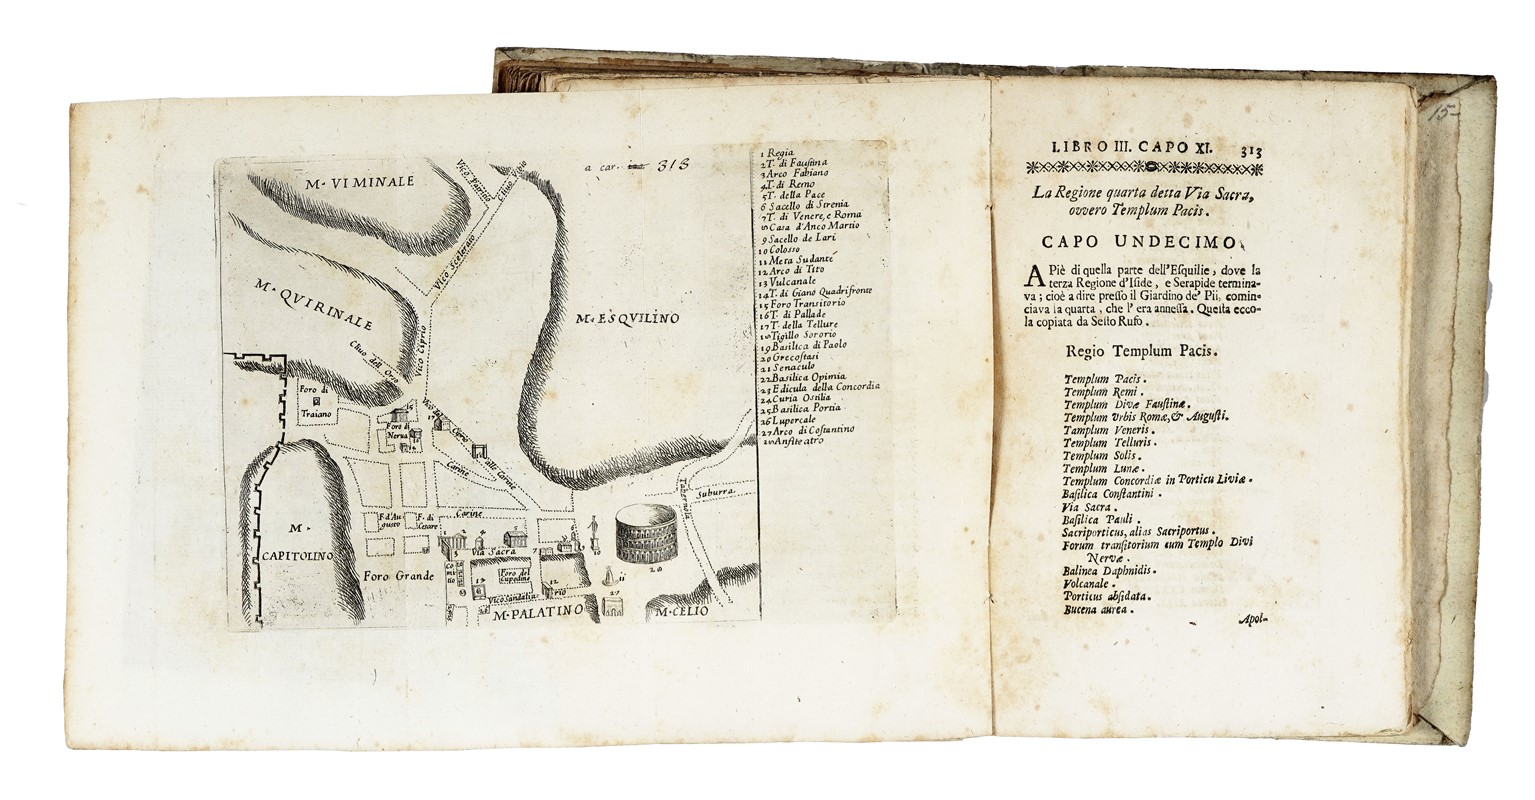 a car. 313
M. VIMINALE
Vico Patritio
Clivo Urbio
Vico Scelerato
M. QVIRINALE
Vico Ciprio
Clivo dell' Orso
M. ESQVILINO
Foro di
Traiano
Foro di
Nerua
Carine
alle Carine
Taberola
Suburra
M.
CAPITOLINO
F. d'Au
gusto
F. di
Cesare
Carine
Via Sacra
Foro Grande
Co
mi
tio
Foro del
Cupedine
Vico Sandalia
rio
M. PALATINO
M. CELIO
1 Regia
2 T. di Faustina
3 Arco Fabiano
4 T. di Remo
5 T. della Pace
6 Sacello di Strenia
7 T. di Venere, e Roma
8 Casa d'Anco Martio
9 Sacello de Lari
10 Colosso
11 Meta Sudante
12 Arco di Tito
13 Vulcanale
14 T. di Giano Quadrifronte
15 Foro Transitorio
16 T. di Pallade
17 T. della Tellure
18 Tigillo Sororio
19 Basilica di Paolo
20 Grecostasi
21 Senaculo
22 Basilica Opimia
23 Edicula della Concordia
24 Curia Ostilia
25 Basilica Portia
26 Lupercale
27 Arco di Costantino
28 Anfiteatro
15-
LIBRO III. CAPO XI. 313
La Regione quarta detta Via Sacra,
ovvero Templum Pacis.
CAPO UNDECIMO.
A Piè di quella parte dell'Eſquilie, dove la
terza Regione d'Iſide, e Serapide termina-
va; cioè a dire preſſo il Giardino de' Pii, comin-
ciava la quarta, che l' era anneſſa. Queſta ecco-
la copiata da Seſto Rufo.
Regio Templum Pacis.
Templum Pacis.
Templum Remi.
Templum Divæ Fauſtinæ.
Templum Urbis Romæ, & Auguſti.
Tamplum Veneris.
Templum Telluris.
Templum Solis.
Templum Lunæ.
Templum Concordiæ in Porticu Liviæ.
Baſilica Conſtantini.
Via Sacra.
Baſilica Pauli.
Sacriporticus, alias Sacriportus.
Forum tranſitorium cum Templo Divi
Nervæ.
Balinea Daphnidis.
Volcanale.
Porticus abſidata.
Bucena aurea.
Apol-